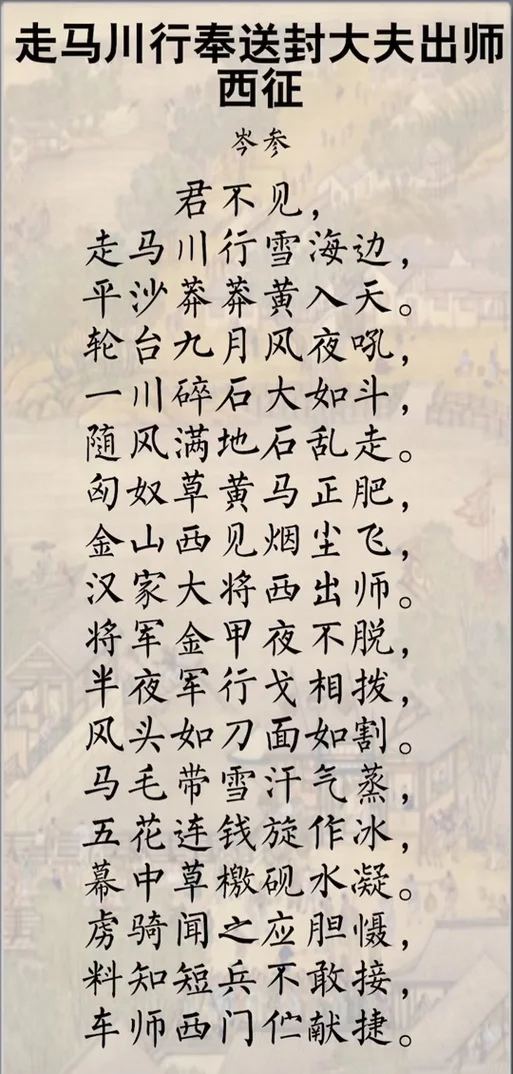 走马川行奉送封大夫出师
西征
岑参
君不见，
走马川行雪海边，
平沙莽莽黄入天。
轮台九月风夜吼，
一川碎石大如斗，
随风满地石乱走。
匈奴草黄马正肥，
金山西见烟尘飞，
汉家大将西出师。
将军金甲夜不脱，
半夜军行戈相拨，
风头如刀面如割。
马毛带雪汗气蒸，
五花连钱旋作冰，
幕中草檄砚水凝。
虏骑闻之应胆慑，
料知短兵不敢接，
车师西门伫献捷。